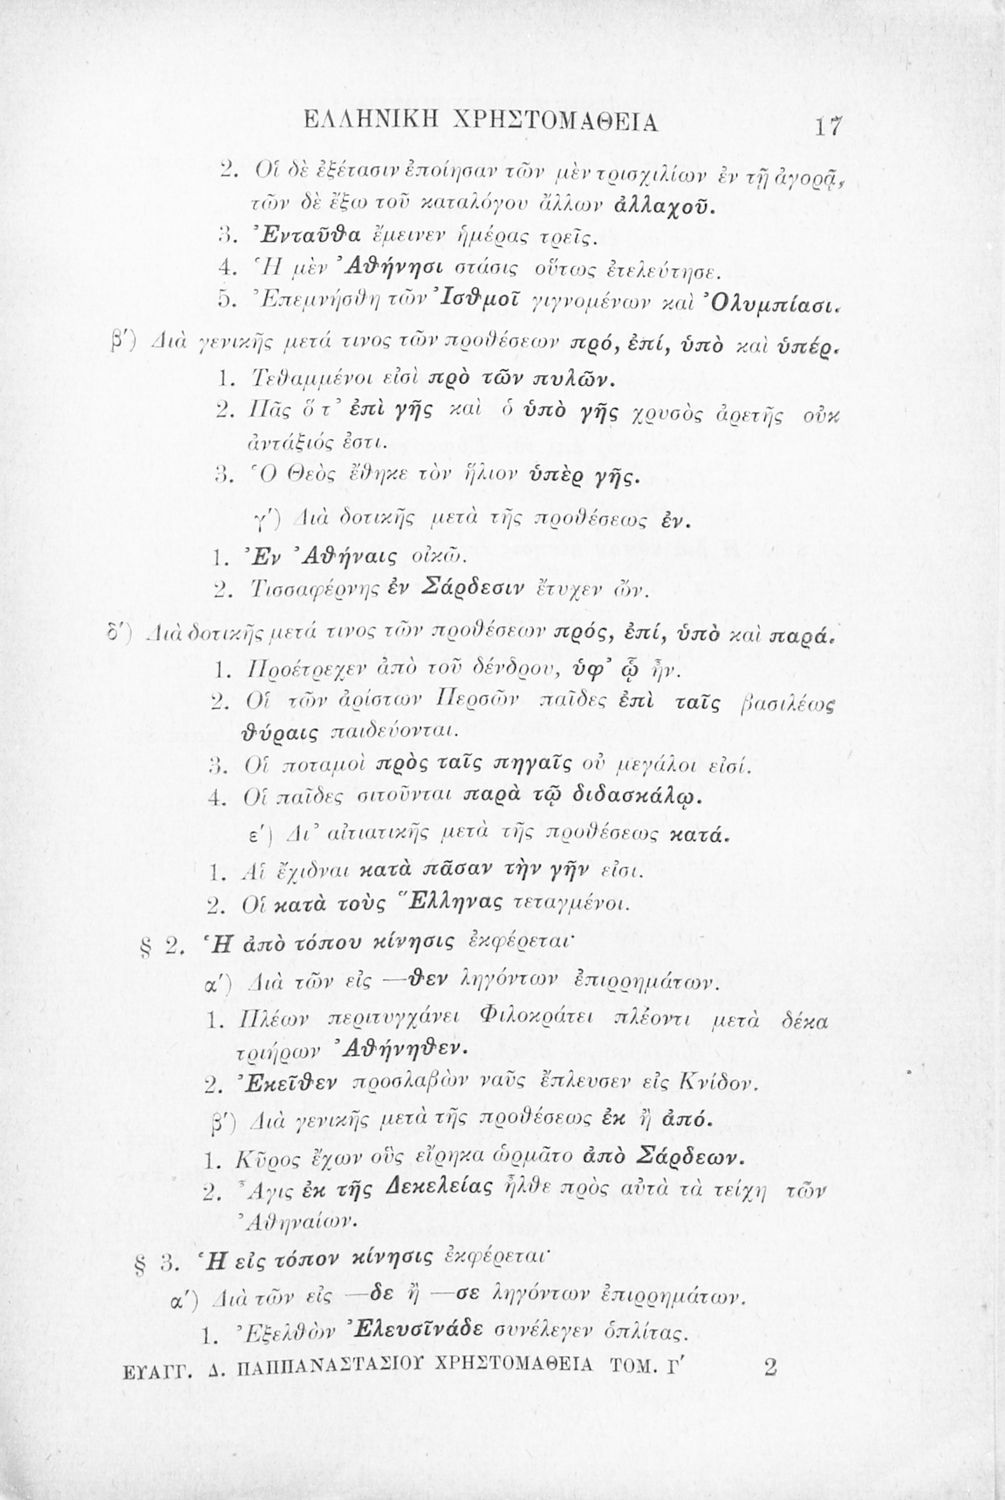 ΕΛΛΗΝΙΚΗ ΧΡΗΣΤΟΜΑΘΕΙΑ 17
2. Οἱ δὲ ἐξέτασιν ἐποίησαν τῶν μὲν τρισχιλίων ἐν τῇ ἀγορᾷ,
τῶν δὲ ἔξω τοῦ καταλόγου ἄλλων ἀλλαχοῦ.
3. Ἐνταῦθα ἔμεινεν ἡμέρας τρεῖς.
4. Ἡ μὲν Ἀθήνησι στάσις οὕτως ἐτελεύτησε.
5. Ἐπεμνήσθη τῶν Ἰσθμοῖ γιγνομένων καὶ Ὀλυμπίασι.
β΄) Διὰ γενικῆς μετά τινος τῶν προθέσεων πρό, ἐπί, ὑπὸ καὶ ὑπέρ.
1. Τεθαμμένοι εἰσὶ πρὸ τῶν πυλῶν.
2. Πᾶς ὅ τ᾽ ἐπὶ γῆς καὶ ὁ ὑπὸ γῆς χρυσὸς ἀρετῆς οὐκ
ἀντάξιός ἐστι.
3. Ὁ Θεὸς ἔθηκε τὸν ἥλιον ὑπὲρ γῆς.
γ΄) Διὰ δοτικῆς μετὰ τῆς προθέσεως ἐν.
1. Ἐν Ἀθήναις οἰκῶ.
2. Τισσαφέρνης ἐν Σάρδεσιν ἔτυχεν ὤν.
δ΄) Διὰ δοτικῆς μετά τινος τῶν προθέσεων πρός, ἐπί, ὑπὸ καὶ παρά.
1. Προέτρεχεν ἀπὸ τοῦ δένδρου, ὑφ᾽ ᾧ ἦν.
2. Οἱ τῶν ἀρίστων Περσῶν παῖδες ἐπὶ ταῖς βασιλέως
θύραις παιδεύονται.
3. Οἱ ποταμοὶ πρὸς ταῖς πηγαῖς οὐ μεγάλοι εἰσί.
4. Οἱ παῖδες σιτοῦνται παρὰ τῷ διδασκάλῳ.
ε΄) Δι᾽ αἰτιατικῆς μετὰ τῆς προθέσεως κατά.
1. Αἱ ἔχιδναι κατὰ πᾶσαν τὴν γῆν εἰσι.
2. Οἱ κατὰ τοὺς Ἕλληνας τεταγμένοι.
§ 2. Ἡ ἀπὸ τόπου κίνησις ἐκφέρεται·
α΄) Διὰ τῶν εἰς —θεν ληγόντων ἐπιρρημάτων.
1. Πλέων περιτυγχάνει Φιλοκράτει πλέοντι μετὰ δέκα
τριήρων Ἀθήνηθεν.
2. Ἐκεῖθεν προσλαβὼν ναῦς ἔπλευσεν εἰς Κνίδον.
β΄) Διὰ γενικῆς μετὰ τῆς προθέσεως ἐκ ἢ ἀπό.
1. Κῦρος ἔχων οὓς εἴρηκα ὡρμᾶτο ἀπὸ Σάρδεων.
2. Ἆγις ἐκ τῆς Δεκελείας ἦλθε πρὸς αὐτὰ τὰ τείχη τῶν
Ἀθηναίων.
§ 3. Ἡ εἰς τόπον κίνησις ἐκφέρεται·
α΄) Διὰ τῶν εἰς —δε ἢ —σε ληγόντων ἐπιρρημάτων.
1. Ἐξελθὼν Ἐλευσῖνάδε συνέλεγεν ὁπλίτας.
ΕΥΑΓΓ. Δ. ΠΑΠΠΑΝΑΣΤΑΣΙΟΥ ΧΡΗΣΤΟΜΑΘΕΙΑ ΤΟΜ. Γ΄ 2